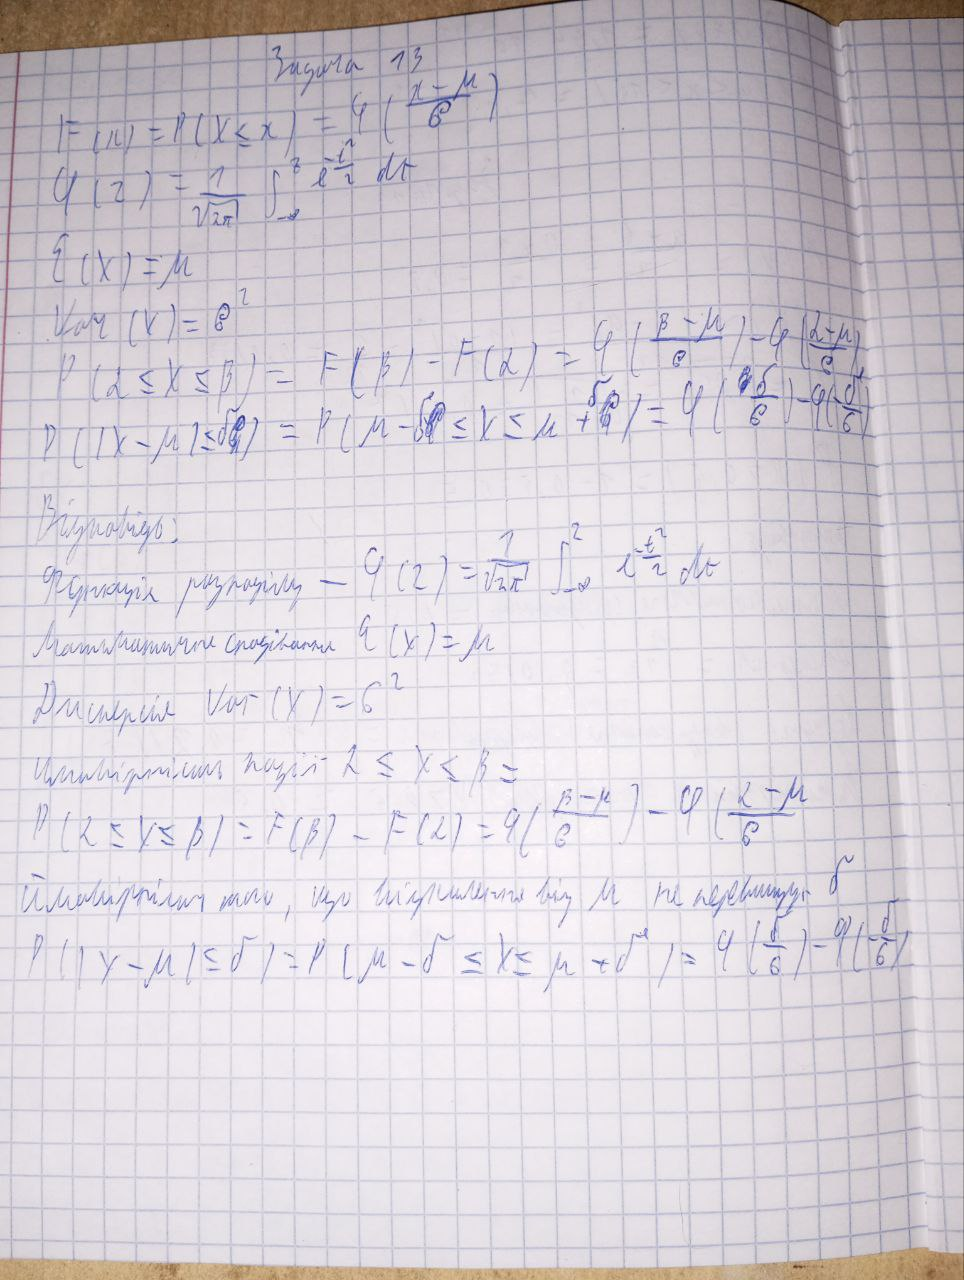 Задача 13
F(x) = P(X ≤ x) = φ((x-μ)/σ)
φ(z) = 1/√2π ∫_{-∞}^{z} e^{-t²/2} dt
E(X) = μ
Var(X) = σ²
P(2 ≤ X ≤ β) = F(β) - F(2) = φ((β-μ)/σ) - φ((2-μ)/σ)
P(|X-μ| ≤ δ) = P(μ-δ ≤ X ≤ μ+δ) = φ(δ/σ) - φ(-δ/σ)
Відповідь:
Функція розподілу - φ(z) = 1/√2π ∫_{-∞}^{z} e^{-t²/2} dt
Математичне сподівання E(X) = μ
Дисперсія Var(X) = σ²
Ймовірність події 2 ≤ X ≤ β =
P(2 ≤ X ≤ β) = F(β) - F(2) = φ((β-μ)/σ) - φ((2-μ)/σ
Ймовірність того, що відхилення від μ не перевищує δ
P(|X-μ| ≤ δ) = P(μ-δ ≤ X ≤ μ+δ) = φ(δ/σ) - φ(-δ/σ)